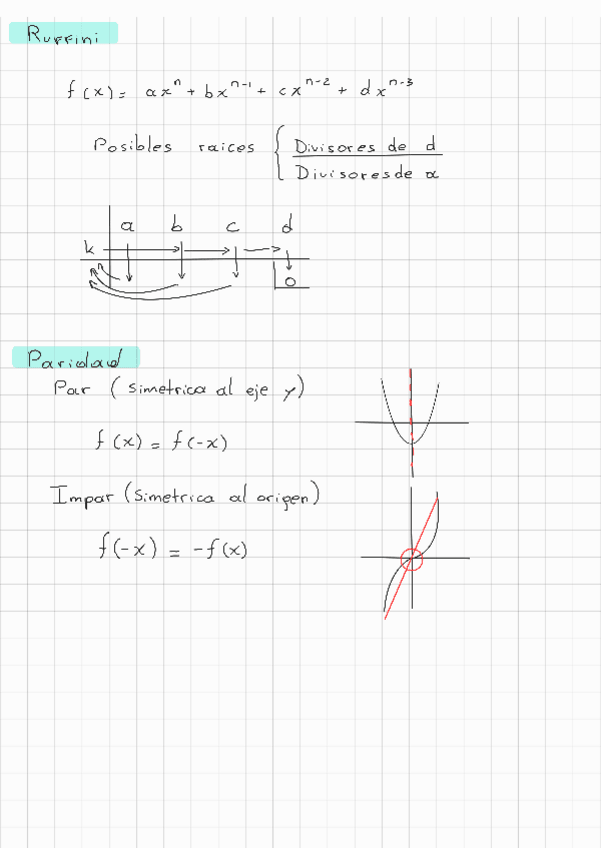 Ruffini
f(x) = axⁿ + bxⁿ⁻¹ + cxⁿ⁻² + dxⁿ⁻³
Posibles raices { Divisores de d
Divisores de a
a b c d
k
0
Paridad
Par (simetrica al eje y)
f(x) = f(-x)
Impar (Simetrica al origen)
f(-x) = -f(x)